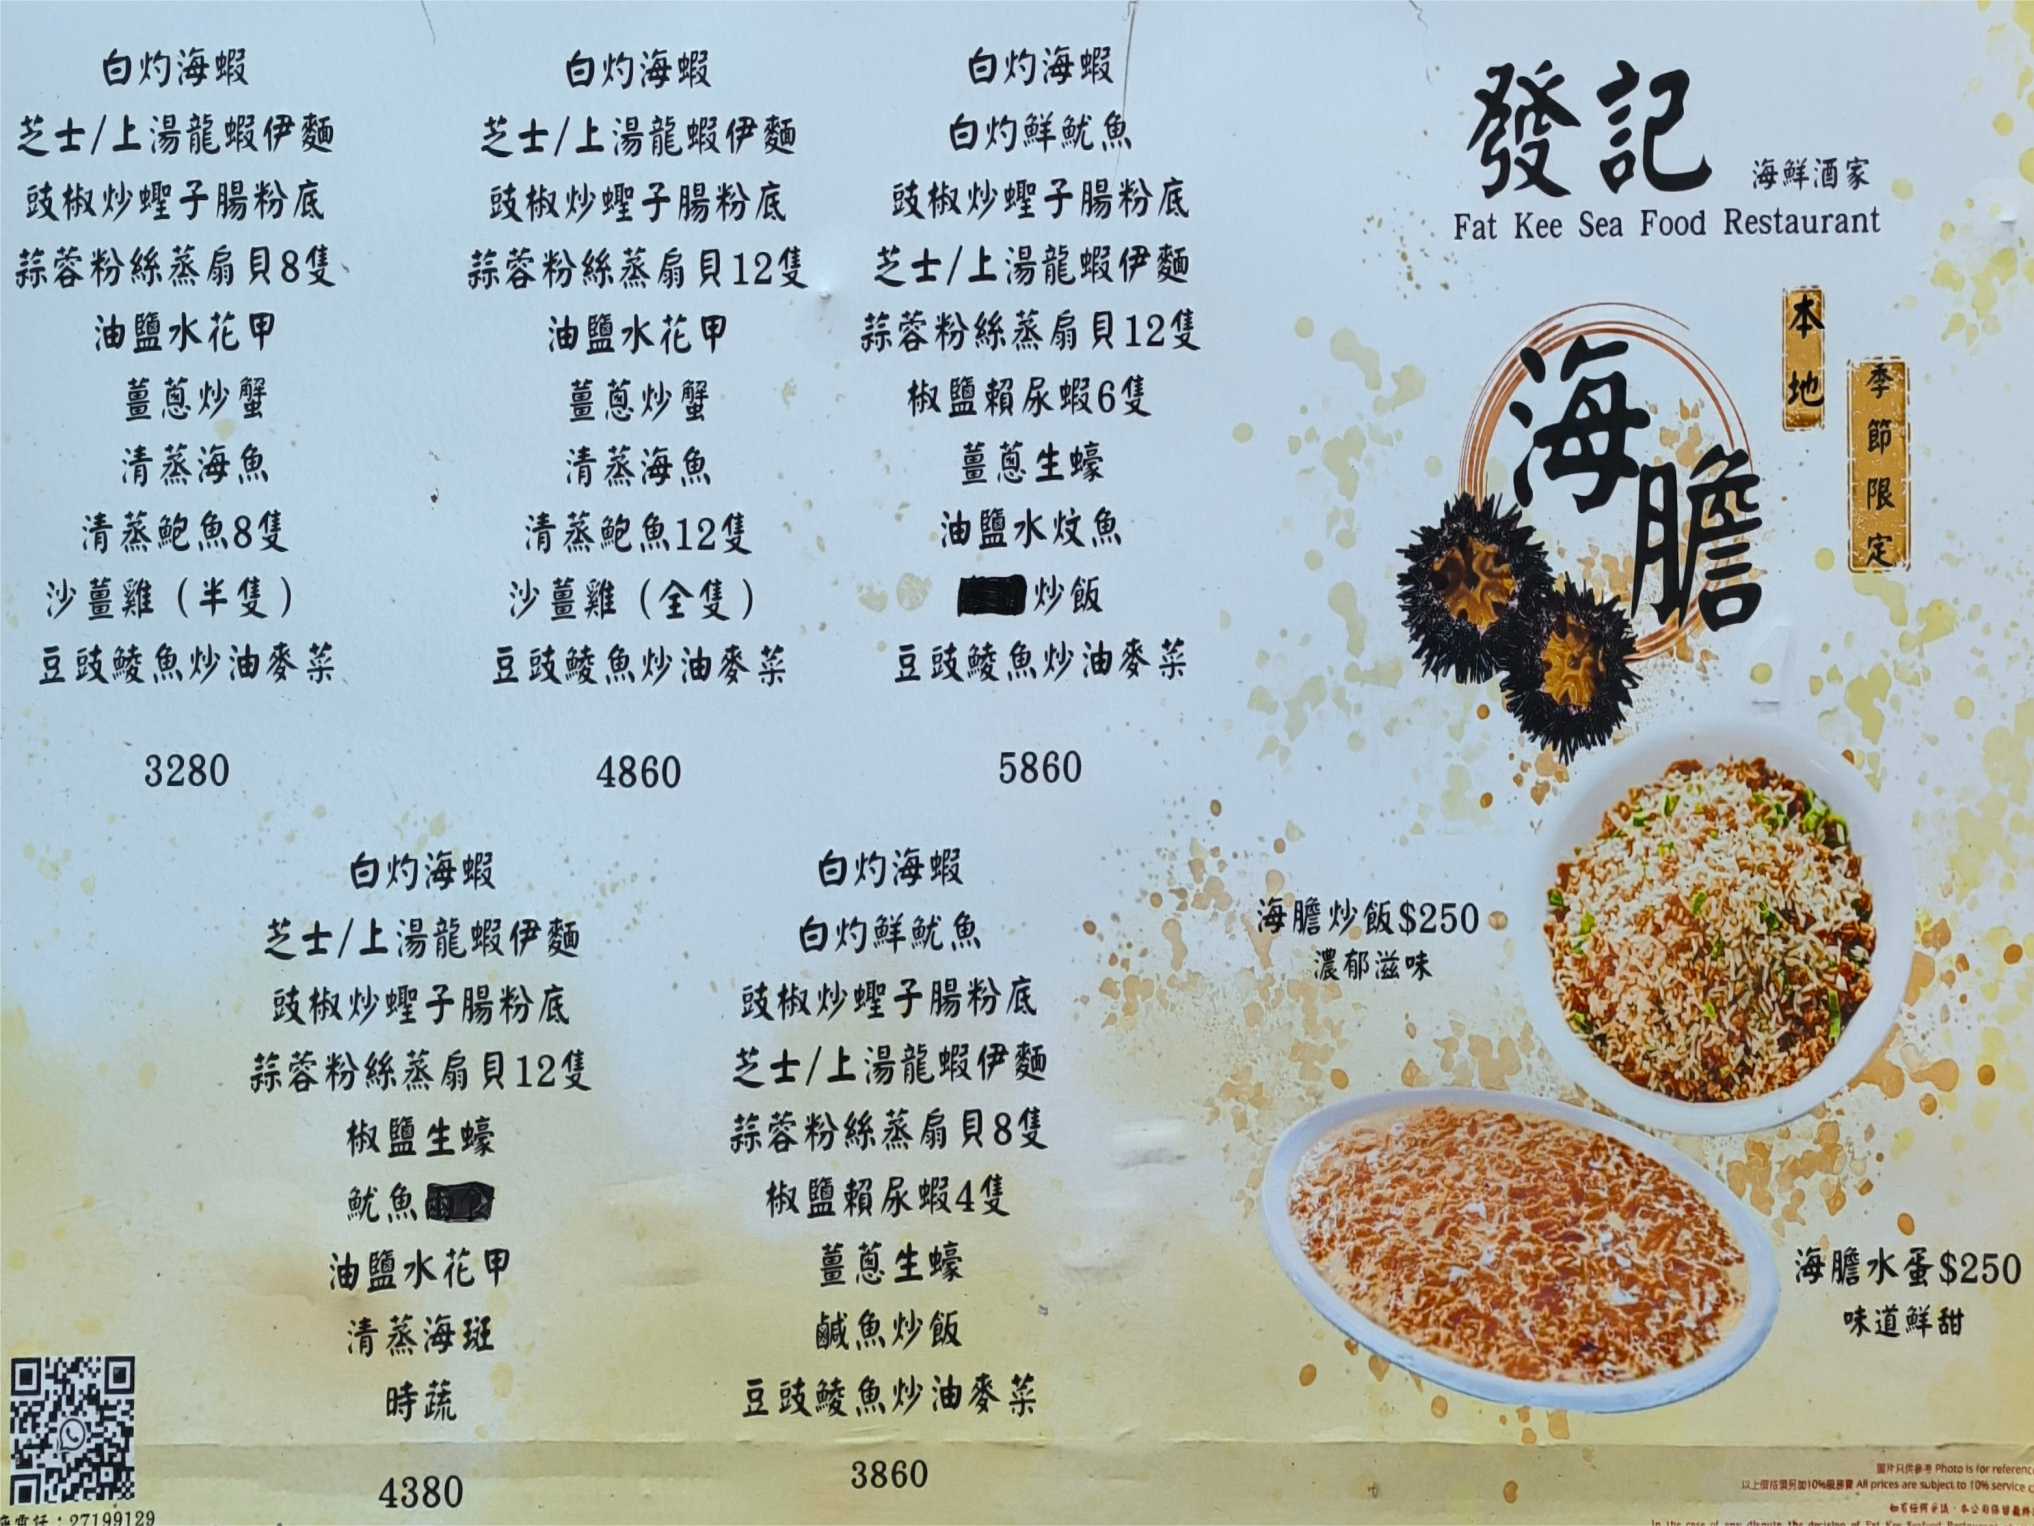 白灼海蝦
芝士/上湯龍蝦伊麵
豉椒炒蟶子腸粉底
蒜蓉粉絲蒸扇貝8隻
油鹽水花甲
薑蔥炒蟹
清蒸海魚
清蒸鮑魚8隻
沙薑雞（半隻）
豆豉鯪魚炒油麥菜
3280
白灼海蝦
芝士/上湯龍蝦伊麵
豉椒炒蟶子腸粉底
蒜蓉粉絲蒸扇貝12隻
油鹽水花甲
薑蔥炒蟹
清蒸海魚
清蒸鮑魚12隻
沙薑雞（全隻）
豆豉鯪魚炒油麥菜
4860
白灼海蝦
白灼鮮魷魚
豉椒炒蟶子腸粉底
芝士/上湯龍蝦伊麵
蒜蓉粉絲蒸扇貝12隻
椒鹽賴尿蝦6隻
薑蔥生蠔
油鹽水炆魚
炒飯
豆豉鯪魚炒油麥菜
5860
白灼海蝦
芝士/上湯龍蝦伊麵
豉椒炒蟶子腸粉底
蒜蓉粉絲蒸扇貝12隻
椒鹽生蠔
魷魚
油鹽水花甲
清蒸海斑
時蔬
4380
白灼海蝦
白灼鮮魷魚
豉椒炒蟶子腸粉底
芝士/上湯龍蝦伊麵
蒜蓉粉絲蒸扇貝8隻
椒鹽賴尿蝦4隻
薑蔥生蠔
鹹魚炒飯
豆豉鯪魚炒油麥菜
3860
電話：27199129
發記 海鮮酒家
Fat Kee Sea Food Restaurant
本地
季節限定
海膽
海膽炒飯$250
濃郁滋味
海膽水蛋$250
味道鮮甜
圖片只供參考 Photo is for reference
以上價格須另加10%服務費 All prices are subject to 10% service
如有任何爭議，本公司保留最終
In the case of any dispute the decision of Fat Kee Seafood Restaurant